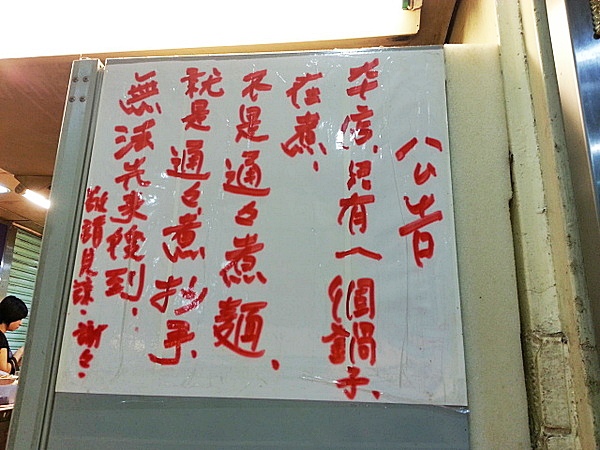 公告
本店只有一個鍋子、
在煮，
不是通通煮麵、
就是通通煮抄手、
無法先來後到，
敬請見諒，謝々，